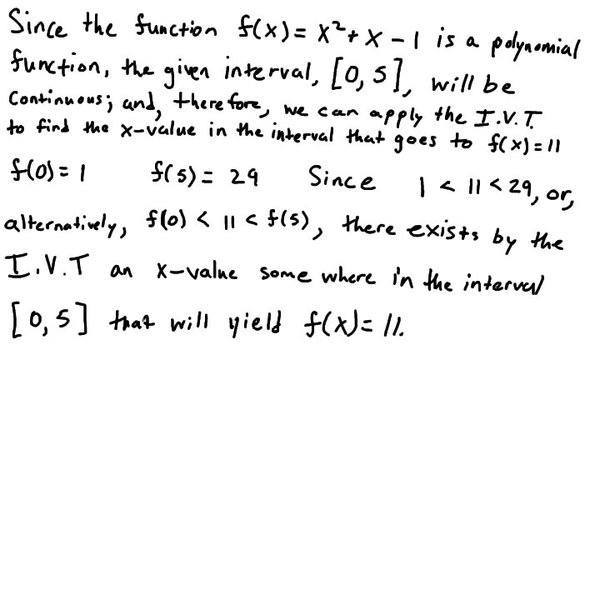 Since the function f(x) = x² + x - 1 is a polynomial
function, the given interval, [0, 5], will be
Continuous; and, therefore, we can apply the I.V.T.
to find the x-value in the interval that goes to f(x) = 11
f(0) = 1 f(5) = 29 Since 1 < 11 < 29, or,
alternatively, f(0) < 11 < f(5), there exists by the
I.V.T an x-value some where in the interval
[0, 5] that will yield f(x) = 11.